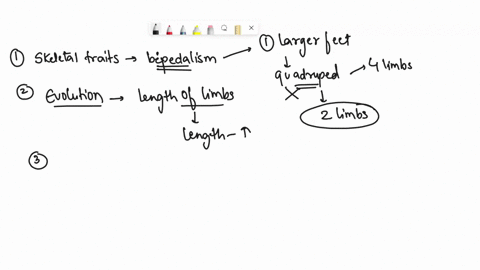 ① Skeletal traits → bipedalism → ① larger feet
↓
quadruped → 4 limbs
X ↓
2 limbs
② Evolution → length of limbs
↓
length - ↑
③